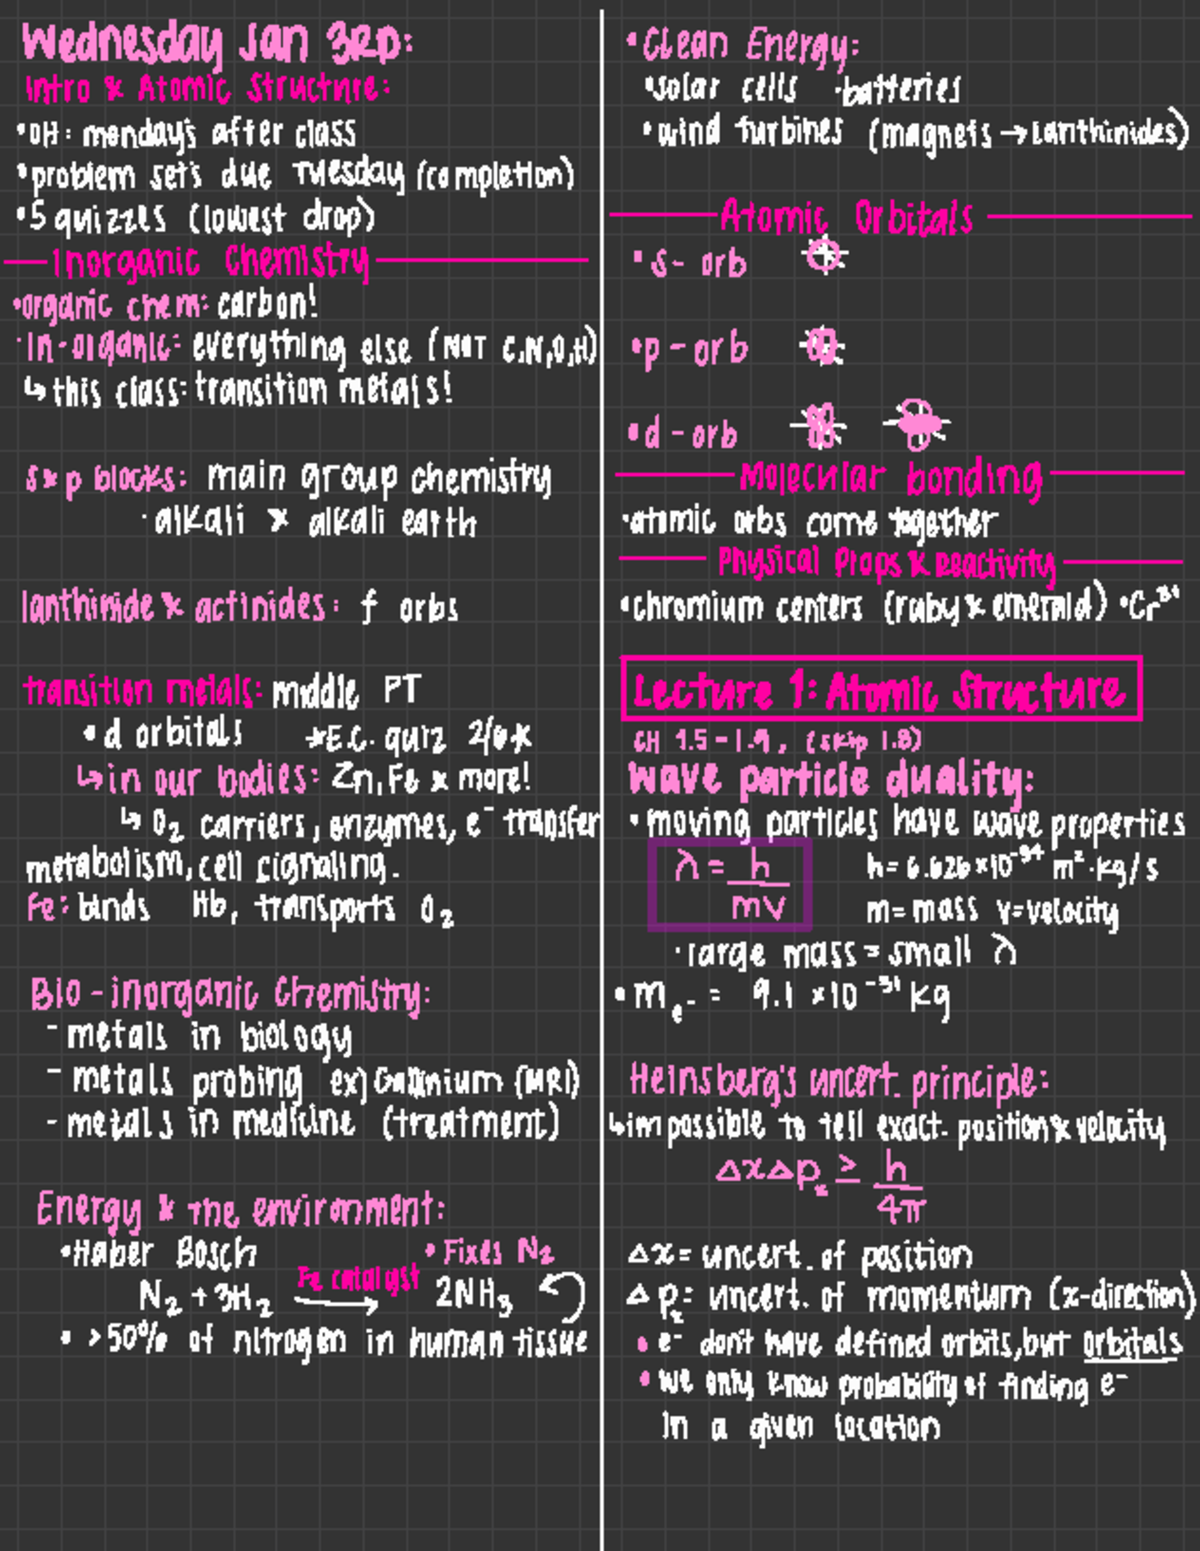 Wednesday Jan 3RD:
Intro & Atomic Structure:
•OH: monday's after class
•problem sets due Tuesday (completion)
•5 quizzes (lowest drop)
Inorganic Chemistry
•organic chem: carbon!
•In-organic: everything else (NOT C,N,O,H)
↳this class: transition metals!
s & p blocks: main group chemistry
•alkali & alkali earth
lanthinide & actinides: f orbs
transition metals: middle PT
•d orbitals *E.C. quiz 2/6*
↳in our bodies: Zn, Fe & more!
↳ O₂ carriers, enzymes, e⁻ transfer
metabolism, cell cignaling.
Fe: binds Hb, transports O₂
Bio-inorganic Chemistry:
- metals in biology
- metals probing ex) Gadinium (MRI)
- metals in medicine (treatment)
Energy & the environment:
•Haber Bosch •Fixes N₂
Fe catalyst
N₂ + 3H₂ → 2NH₃
• >50% of nitrogen in human tissue
•Clean Energy:
•solar cells •batteries
•wind turbines (magnets → Lanthinides)
Atomic Orbitals
•s-orb
•p-orb
•d-orb
Molecular bonding
•atomic orbs come together
Physical Props & Reactivity
•chromium centers (ruby & emerald) •Cr³⁺
Lecture 1: Atomic Structure
CH 1.5-1.9, (skip 1.8)
Wave particle duality:
•moving particles have wave properties
λ = h/mv h=6.626×10⁻³⁴ m²·kg/s
m=mass v=velocity
•large mass = small λ
•mₑ₋ = 9.1 ×10⁻³¹ kg
Heinsberg's uncert. principle:
↳impossible to tell exact. position & velocity
ΔxΔpₓ ≥ h/4π
Δx= uncert. of position
Δpₓ= uncert. of momentum (x-direction)
•e⁻ don't have defined orbits, but orbitals
•we only know probability of finding e⁻
in a given location